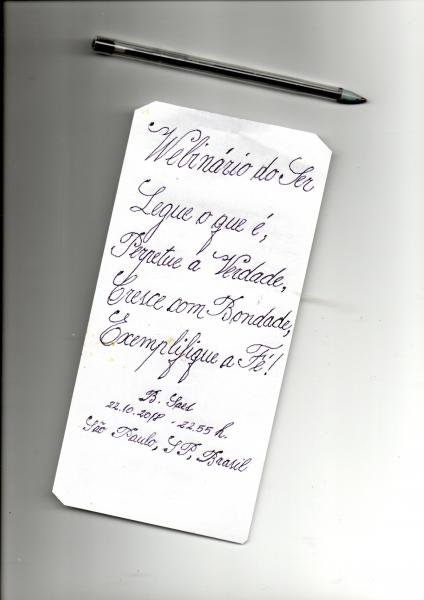 Webinário do Ser
Legue o que é,
Perpetue a Verdade,
Cresce com Bondade,
Exemplifique a Fé!
B. Saet
22.10.2018 - 22.55 h.
São Paulo, SP, Brasil